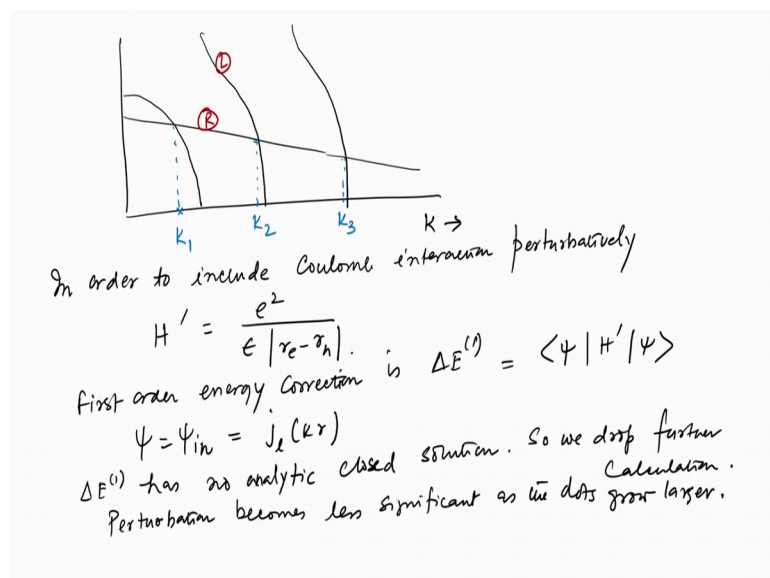 L
R
K₁ K₂ K₃ K →
In order to include Coulomb interaction perturbatively
H' = e² / ϵ |rₑ - rₕ| .
First order energy correction is ΔE⁽¹⁾ = <ψ|H'|ψ>
ψ = ψin = jₗ(kr)
ΔE⁽¹⁾ has no analytic closed solution. So we drop further
Calculation.
Perturbation becomes less significant as the dots grow larger.